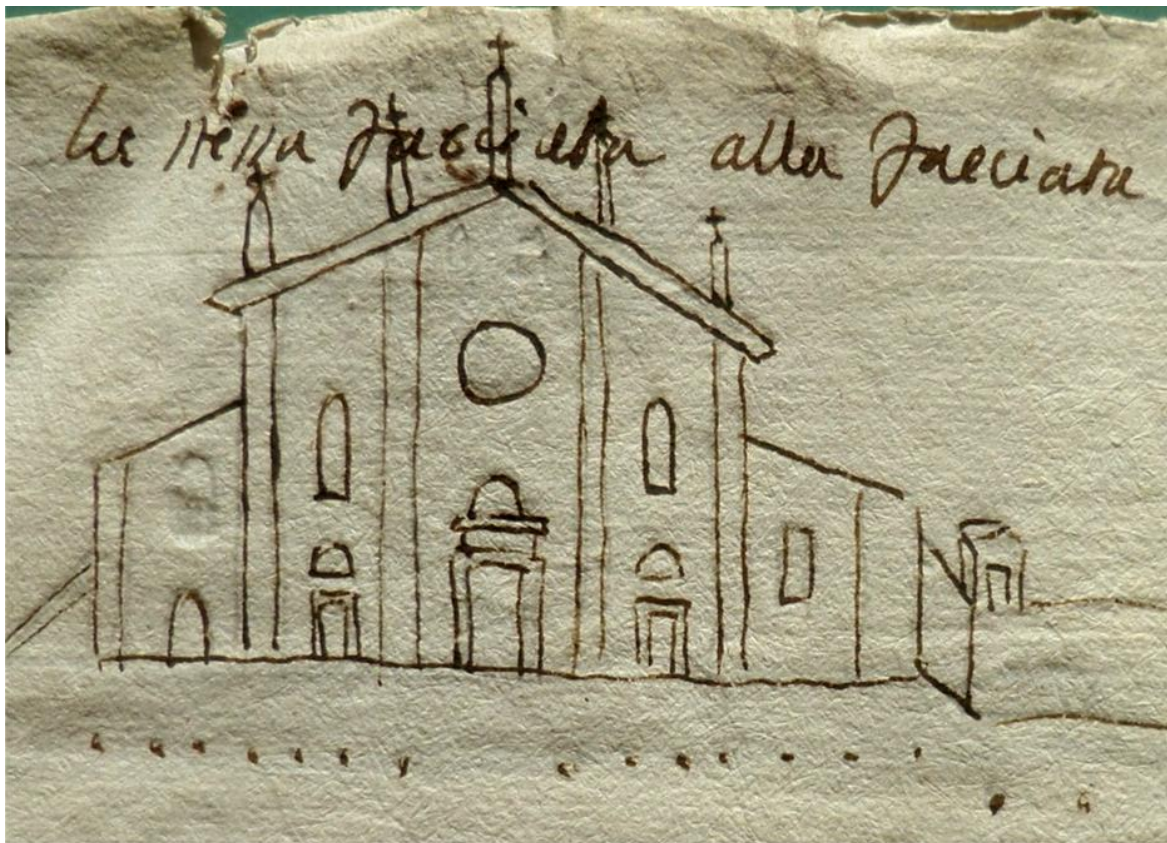 la stessa facciata alla facciata